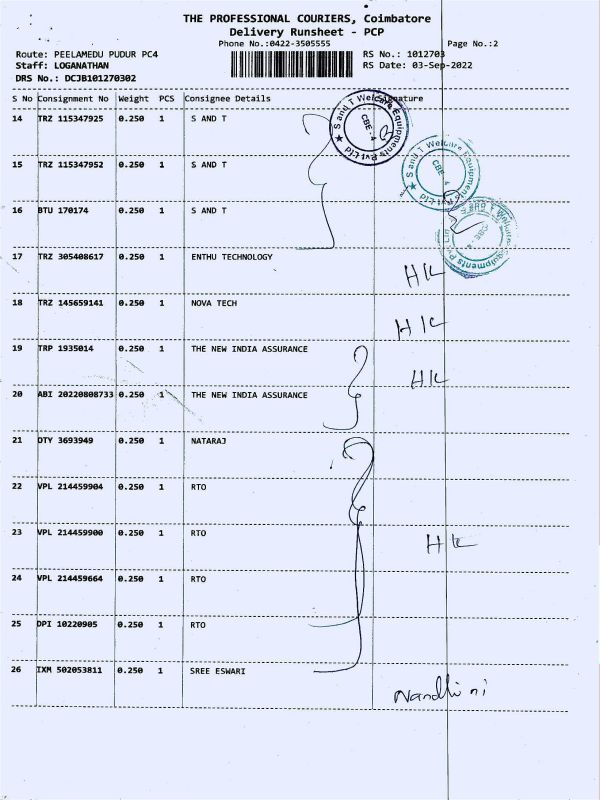 THE PROFESSIONAL COURIERS, Coimbatore
Delivery Runsheet - PCP
Phone No.:0422-3505555
Page No.:2
Route: PEELAMEDU PUDUR PC4
RS No.: 1012703
Staff: LOGANATHAN
RS Date: 03-Sep-2022
DRS No.: DCJB101270302
S No Consignment No Weight PCS Consignee Details Signature
14 TRZ 115347925 0.250 1 S AND T
S and T Welcare Equipments Pvt Ltd
CBE - 4
15 TRZ 115347952 0.250 1 S AND T
S and T Welcare Equipments Pvt Ltd
CBE - 4
16 BTU 170174 0.250 1 S AND T
17 TRZ 305408617 0.250 1 ENTHU TECHNOLOGY
18 TRZ 145659141 0.250 1 NOVA TECH
19 TRP 1935014 0.250 1 THE NEW INDIA ASSURANCE
20 ABI 20220808733 0.250 1 THE NEW INDIA ASSURANCE
21 DTY 3693949 0.250 1 NATARAJ
22 VPL 214459904 0.250 1 RTO
23 VPL 214459900 0.250 1 RTO
24 VPL 214459664 0.250 1 RTO
25 DPI 10220905 0.250 1 RTO
26 IXM 502053811 0.250 1 SREE ESWARI
Nandhini